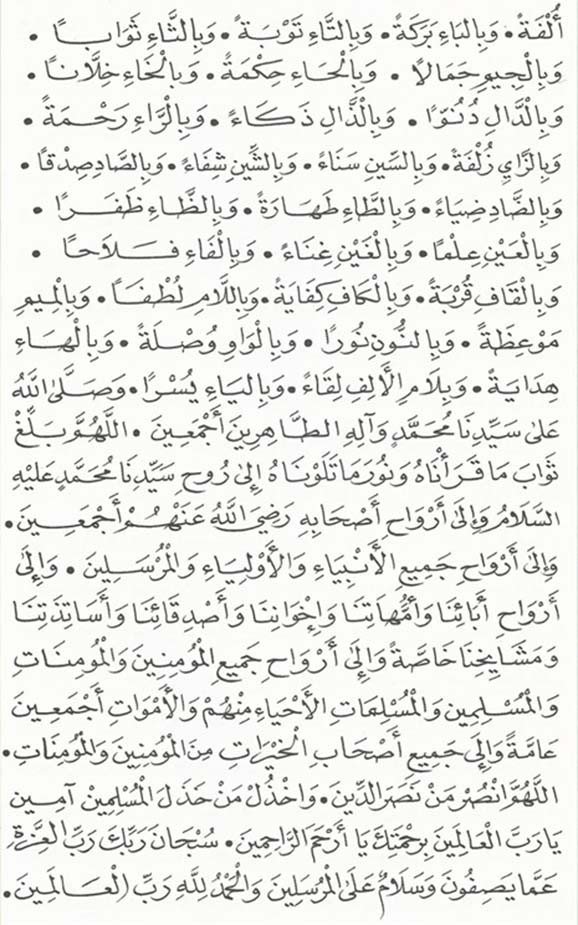 أُلْفَةً • وَبِالْبَاءِ بَرَكَةً • وَبِالتَّاءِ تَوْبَةً • وَبِالثَّاءِ ثَوَابًا •
وَبِالْجِيمِ جَمَالًا • وَبِالْحَاءِ حِكْمَةً • وَبِالْخَاءِ خِلَّانًا •
وَبِالدَّالِ دُنُوًّا • وَبِالذَّالِ ذَكَاءً • وَبِالرَّاءِ رَحْمَةً •
وَبِالزَّايِ زُلْفَةً • وَبِالسِّينِ سَنَاءً • وَبِالشِّينِ شِفَاءً • وَبِالصَّادِ صِدْقًا •
وَبِالضَّادِ ضِيَاءً • وَبِالطَّاءِ طَهَارَةً • وَبِالظَّاءِ ظَفَرًا •
وَبِالْعَيْنِ عِلْمًا • وَبِالْغَيْنِ غِنَاءً • وَبِالْفَاءِ فَلَاحًا •
وَبِالْقَافِ قُرْبَةً • وَبِالْكَافِ كِفَايَةً • وَبِاللَّامِ لُطْفًا • وَبِالْمِيمِ
مَوْعِظَةً • وَبِالنُّونِ نُورًا • وَبِالْوَاوِ وُصْلَةً • وَبِالْهَاءِ
هِدَايَةً • وَبِلَامِ الْأَلِفِ لِقَاءً • وَبِالْيَاءِ يُسْرًا • وَصَلَّى اللَّهُ
عَلَى سَيِّدِنَا مُحَمَّدٍ وَآلِهِ الطَّاهِرِينَ أَجْمَعِينَ • اللَّهُمَّ بَلِّغْ
ثَوَابَ مَا قَرَأْنَاهُ وَنُورَ مَا تَلَوْنَاهُ إِلَى رُوحِ سَيِّدِنَا مُحَمَّدٍ عَلَيْهِ
السَّلَامُ وَإِلَى أَرْوَاحِ أَصْحَابِهِ رَضِيَ اللَّهُ عَنْهُمْ أَجْمَعِينَ •
وَإِلَى أَرْوَاحِ جَمِيعِ الْأَنْبِيَاءِ وَالْأَوْلِيَاءِ وَالْمُرْسَلِينَ • وَإِلَى
أَرْوَاحِ أَبَائِنَا وَأُمَّهَاتِنَا وَإِخْوَانِنَا وَأَصْدِقَائِنَا وَأَسَاتِذَتِنَا
وَمَشَايِخِنَا خَاصَّةً وَإِلَى أَرْوَاحِ جَمِيعِ الْمُؤْمِنِينَ وَالْمُؤْمِنَاتِ
وَالْمُسْلِمِينَ وَالْمُسْلِمَاتِ الْأَحْيَاءِ مِنْهُمْ وَالْأَمْوَاتِ أَجْمَعِينَ
عَامَّةً وَإِلَى جَمِيعِ أَصْحَابِ الْخَيْرَاتِ مِنَ الْمُؤْمِنِينَ وَالْمُؤْمِنَاتِ •
اللَّهُمَّ انْصُرْ مَنْ نَصَرَ الدِّينَ • وَاخْذُلْ مَنْ خَذَلَ الْمُسْلِمِينَ آمِين
يَا رَبَّ الْعَالَمِينَ بِرَحْمَتِكَ يَا أَرْحَمَ الرَّاحِمِينَ • سُبْحَانَ رَبِّكَ رَبِّ الْعِزَّةِ
عَمَّا يَصِفُونَ وَسَلَامٌ عَلَى الْمُرْسَلِينَ وَالْحَمْدُ لِلَّهِ رَبِّ الْعَالَمِينَ •